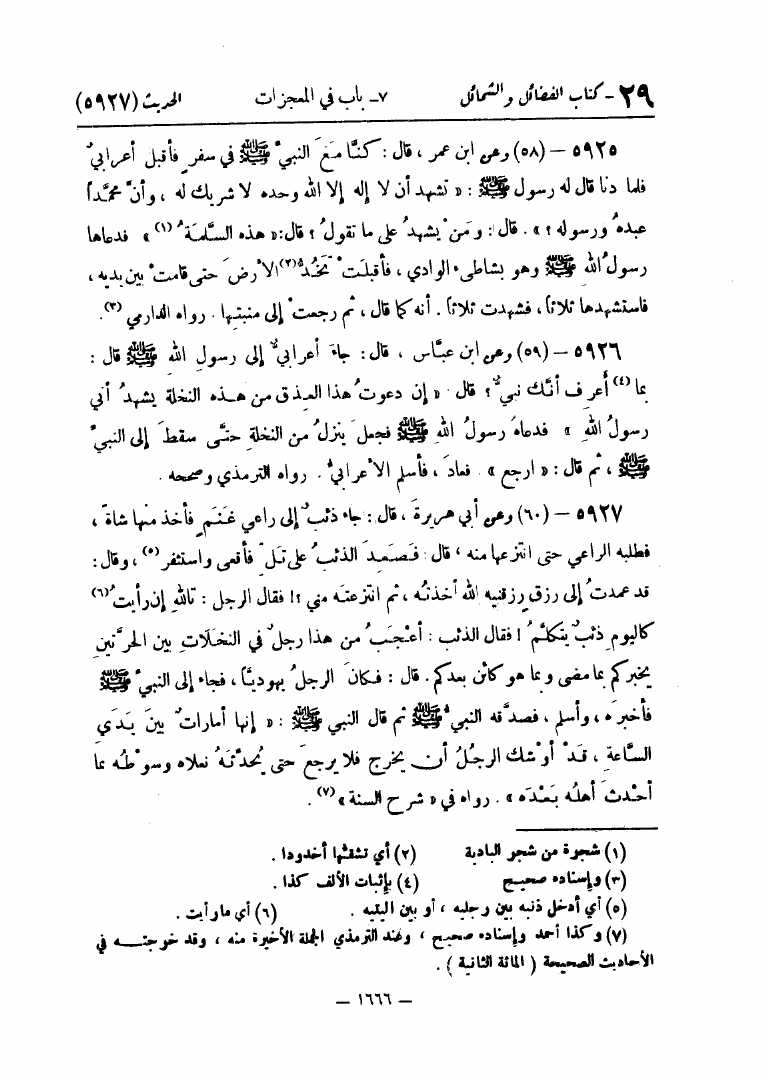 ٢٩ - كتاب الفضائل والشمائل ٧- باب في المعجزات الحديث (٥٩٢٧)
٥٩٢٥ – (٥٨) وعن ابن عمر ، قال : كنَّا مَعَ النبيِّ ﷺ في سفرٍ فأقبل أعرابيٌّ
فلما دنا قال له رسول ﷺ : « تشهد أن لا إله إلا الله وحده لا شريك له ، وأنَّ محمَّداً
عبدهُ ورسوله ؟ » . قال : ومَنْ يشهدُ على ما تقولُ ؟ قال : « هذه السَّلَمةُ (١) » فدعاها
رسولُ اللهِ ﷺ وهو بشاطىء الوادي ، فأقبلَتْ تَخُدُّ (٢) الأرضَ حتى قامتْ بين يديه ،
فاستشهدها ثلاثاً ، فشهدت ثلاثاً . أنه كما قال ، ثم رجعتْ إلى منبتها . رواه الدارمي (٣) .
٥٩٢٦ – (٥٩) وعن ابن عبَّاس ، قال : جاءَ أعرابيٌّ إلى رسولِ اللهِ ﷺ قال :
بما (٤) أعرف أنَّك نبيٌّ ؟ قال « إن دعوتُ هذا العِذق من هذه النخلة يشهدُ أني
رسولُ اللهِ » فدعاهُ رسولُ اللهِ ﷺ فجعلَ ينزلُ من النخلةِ حتَّى سقطَ إلى النبيِّ
ﷺ ، ثم قال : « ارجع » . فعادَ ، فأسلم الأعرابيُّ . رواه الترمذي وصححه .
٥٩٢٧ – (٦٠) وعن أبي هريرةَ ، قال : جاء ذئبٌ إلى راعي غَنَمٍ فأخذ منها شاةً ،
فطلبه الراعي حتى انتزعها منه ، قال : فَصَعِدَ الذئبُ على تلّ فأقعى واستثفر (٥) ، وقال :
قد عمدتُ إلى رزقٍ رزقنيه الله أخذتُه ، ثم انتزعتَه مني ؟! فقال الرجل : تاللهِ إن رأيتُ (٦)
كاليومِ ذئبٌ يتكلَّمُ ! فقال الذئب : أعْجَبُ من هذا رجلٌ في النخَلَاتِ بين الحرَّتينِ
يخبركم بما مضى وبما هو كائن بعدكم . قال : فكانَ الرجلُ يهوديّاً ، فجاء إلى النبيِّ ﷺ
فأخبرَه ، وأسلم ، فصدَّقه النبيُّ ﷺ ثم قال النبي ﷺ : « إنها أماراتٌ بينَ يَدَي
السَّاعةِ ، قَدْ أوْشك الرجُلُ أن يخرج فلا يرجعَ حتى يُحدِّثَهُ نعلاه وسوْطُه بما
أحْدثَ أهلُه بَعْدَه » . رواه في « شرح السنة » (٧) .
(١) شجرة من شجر البادية (٢) أي تشقها أخدودا .
(٣) وإسناده صحيح (٤) بإثبات الألف كذا .
(٥) أي أدخل ذنبه بين رجليه ، أو بين اليتيه . (٦) أي ما رأيت .
(٧) وكذا أحمد وإسناده صحيح ، وعند الترمذي الجملة الأخيرة منه ، وقد خرجتــه في
الأحاديث الصحيحة ( المائة الثانية ) .
– ١٦٦٦ –